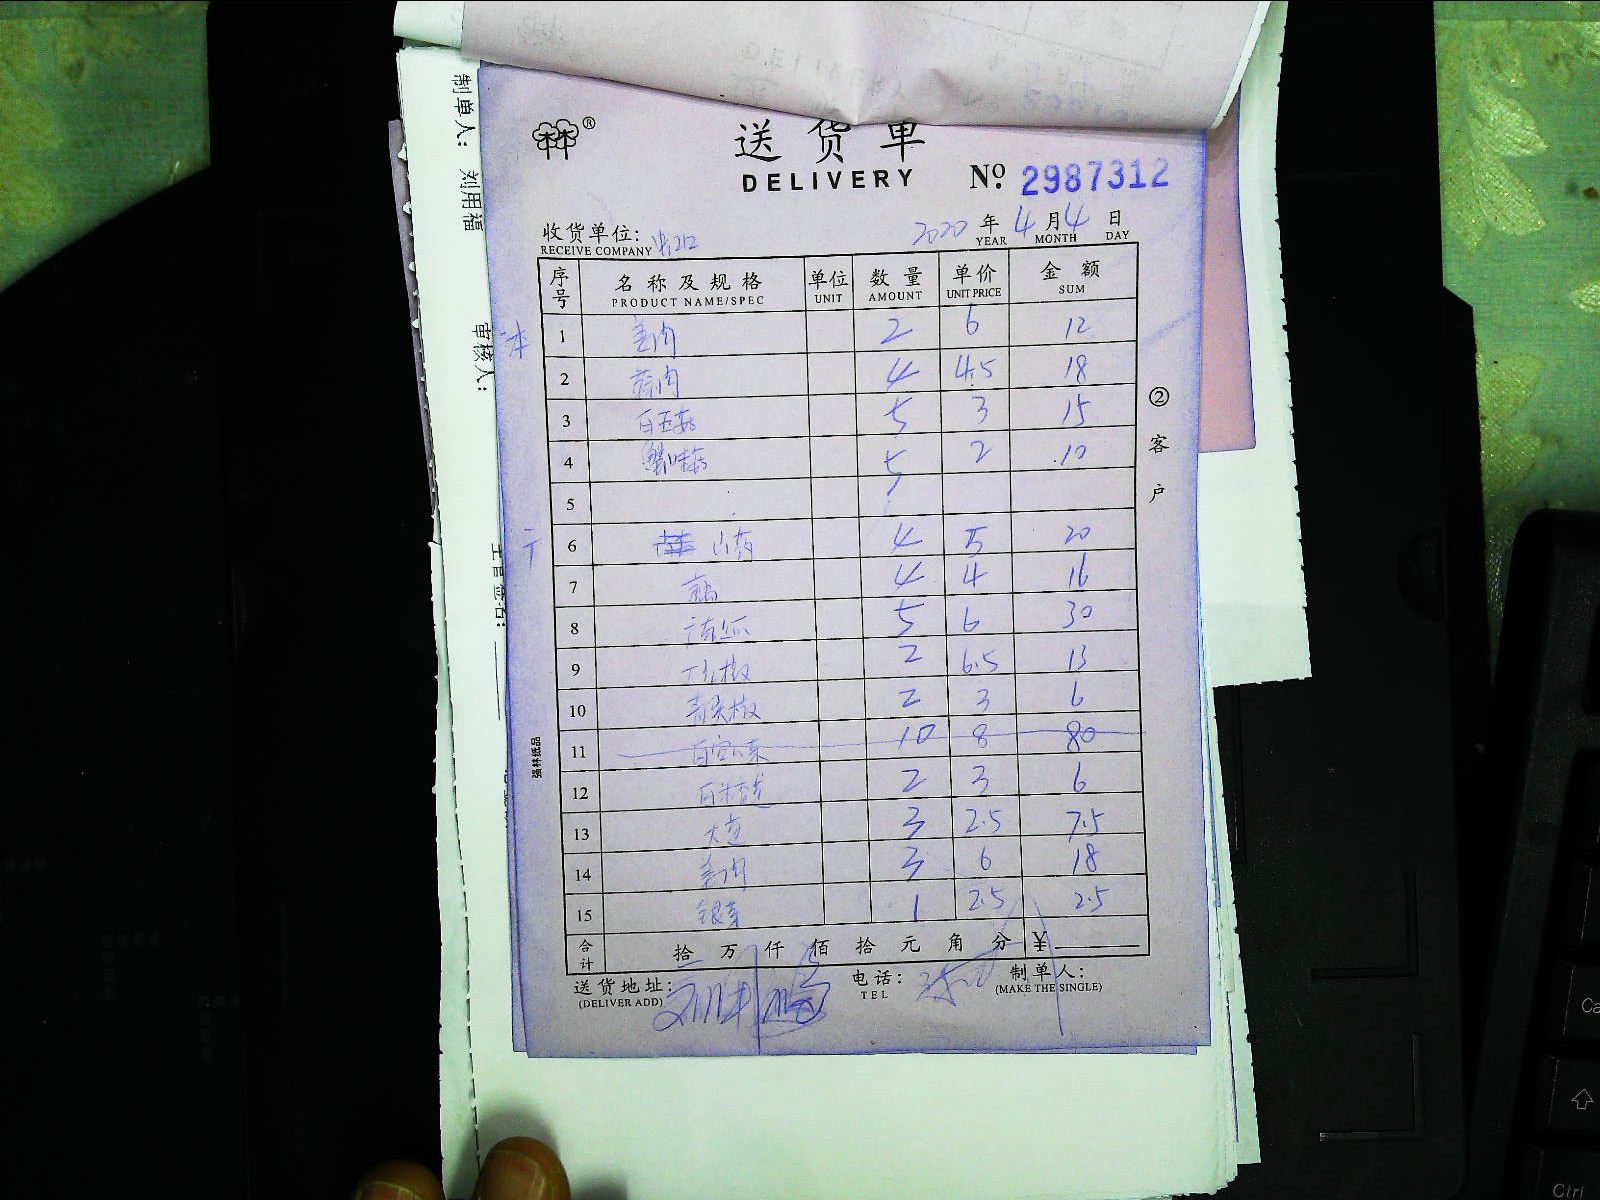 制单人： 刘用福
审核人：
®
送货单
DELIVERY
No. 2987312
收货单位：
RECEIVE COMPANY
2020 年 4 月 4 日
YEAR MONTH DAY
序号 名称及规格 单位 数量 单价 金额
PRODUCT NAME/SPEC UNIT AMOUNT UNIT PRICE SUM
1 姜肉 2 6 12
2 蒜肉 4 4.5 18
3 白玉菇 5 3 15
4 蟹味菇 5 2 10
5
6 山药 4 5 20
7 4 4 16
8 5 6 30
9 2 6.5 13
10 青尖椒 2 3 6
11 10 8 80
12 2 3 6
13 大 3 2.5 7.5
14 姜肉 3 6 18
15 银芽 1 2.5 2.5
合计 拾 万 仟 佰 拾 元 角 分 ¥
送货地址： 电话： 制单人：
(DELIVER ADD) TEL (MAKE THE SINGLE)
② 客户
强林纸品
Ctrl